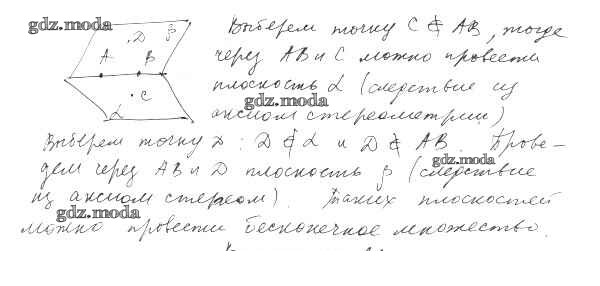 gdz.moda
A D B β
C
α
Выберем точку C ∉ AB, тогда
через AB и C можно провести
плоскость α (следствие из
gdz.moda
аксиом стереометрии)
Выберем точку D : D ∉ α и D ∉ AB. Прове-
gdz.moda
дем через AB и D плоскость β (следствие
из аксиом стереом). Таких плоскостей
gdz.moda
можно провести бесконечное множество.